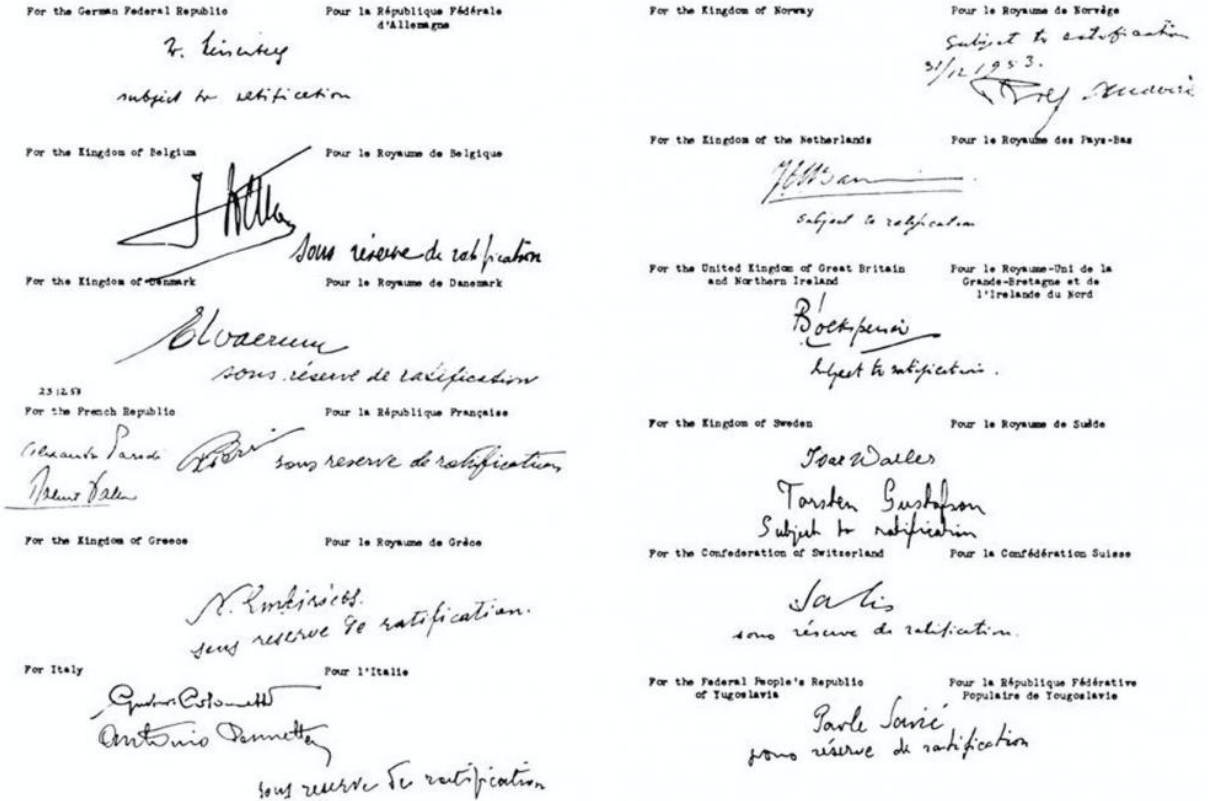 For the German Federal Republic
Pour la République Fédérale
d'Allemagne
W. Heisenberg
subject to ratification
For the Kingdom of Belgium
Pour le Royaume de Belgique
sous réserve de ratification
For the Kingdom of Denmark
Pour le Royaume de Danemark
sous réserve de ratification
23 12 53
For the French Republic
Pour la République Française
Alexandre Parodi
sous reserve de ratification
For the Kingdom of Greece
Pour le Royaume de Grèce
sous reserve de ratification.
For Italy
Pour l'Italie
Gustavo Colonnetti
Antonio Pennetta
sous reserve de ratification
For the Kingdom of Norway
Pour le Royaume de Norvège
Subject to ratification
31/12 1953.
For the Kingdom of the Netherlands
Pour le Royaume des Pays-Bas
subject to ratification
For the United Kingdom of Great Britain
and Northern Ireland
Pour le Royaume-Uni de la
Grande-Bretagne et de
l'Irelande du Nord
subject to ratification.
For the Kingdom of Sweden
Pour le Royaume de Suède
Ivar Waller
Torsten Gustafson
Subject to ratification
For the Confederation of Switzerland
Pour la Confédération Suisse
Salis
sous réserve de ratification.
For the Federal People's Republic
of Yugoslavia
Pour la République Fédérative
Populaire de Yougoslavie
Pavle Savić
sous réserve de ratification